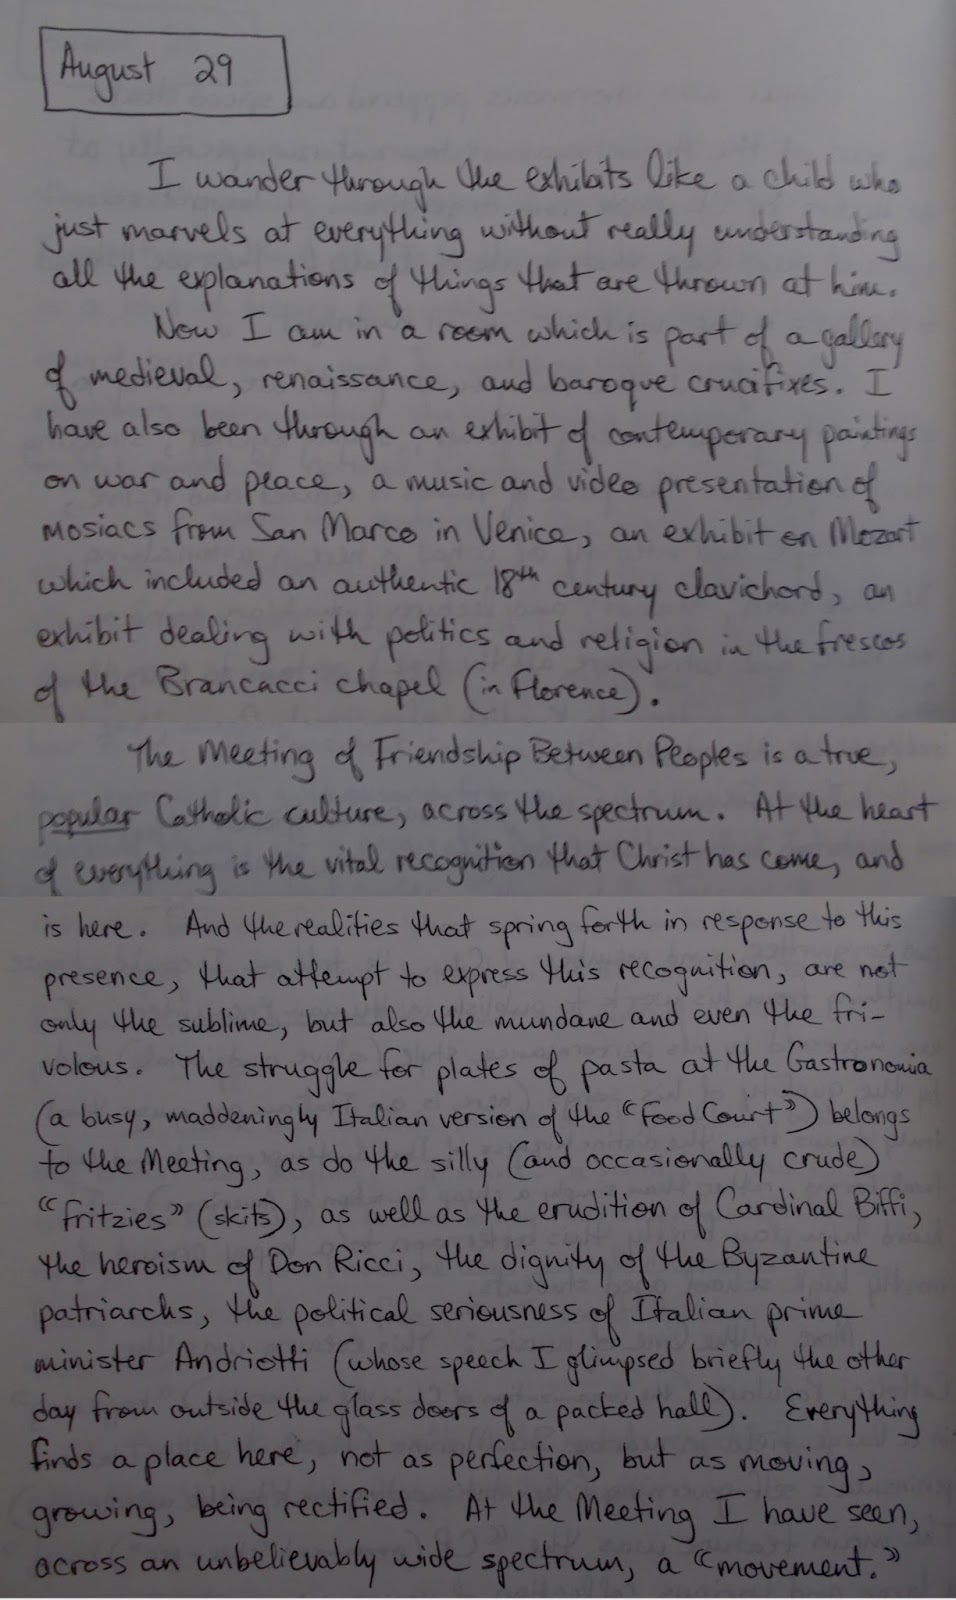 August 29
I wander through the exhibits like a child who
just marvels at everything without really understanding
all the explanations of things that are thrown at him.
Now I am in a room which is part of a gallery
of medieval, renaissance, and baroque crucifixes. I
have also been through an exhibit of contemporary paintings
on war and peace, a music and video presentation of
mosiacs from San Marco in Venice, an exhibit on Mozart
which included an authentic 18th century clavichord, an
exhibit dealing with politics and religion in the frescos
of the Brancacci chapel (in Florence).
The Meeting of Friendship Between Peoples is a true,
popular Catholic culture, across the spectrum. At the heart
of everything is the vital recognition that Christ has come, and
is here. And the realities that spring forth in response to this
presence, that attempt to express this recognition, are not
only the sublime, but also the mundane and even the fri-
volous. The struggle for plates of pasta at the Gastronomia
(a busy, maddeningly Italian version of the "Food Court") belongs
to the Meeting, as do the silly (and occasionally crude)
"fritzies" (skits), as well as the erudition of Cardinal Biffi,
the heroism of Don Ricci, the dignity of the Byzantine
patriarchs, the political seriousness of Italian prime
minister Andriotti (whose speech I glimpsed briefly the other
day from outside the glass doors of a packed hall). Everything
finds a place here, not as perfection, but as moving,
growing, being rectified. At the Meeting I have seen,
across an unbelievably wide spectrum, a "movement."